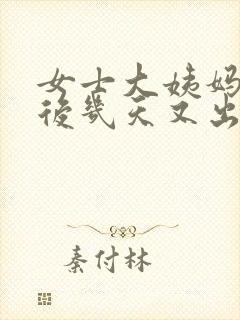 女士大姨妈
後幾天又出
秦付林